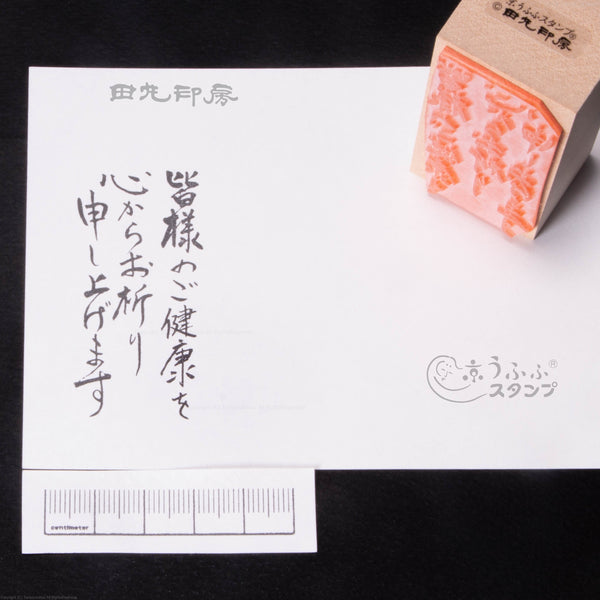 京うふふスタンプ®
© 田丸印房
田丸印房
皆様のご健康を
心からお祈り
申し上げます
京うふふ®
スタンプ
centimeter